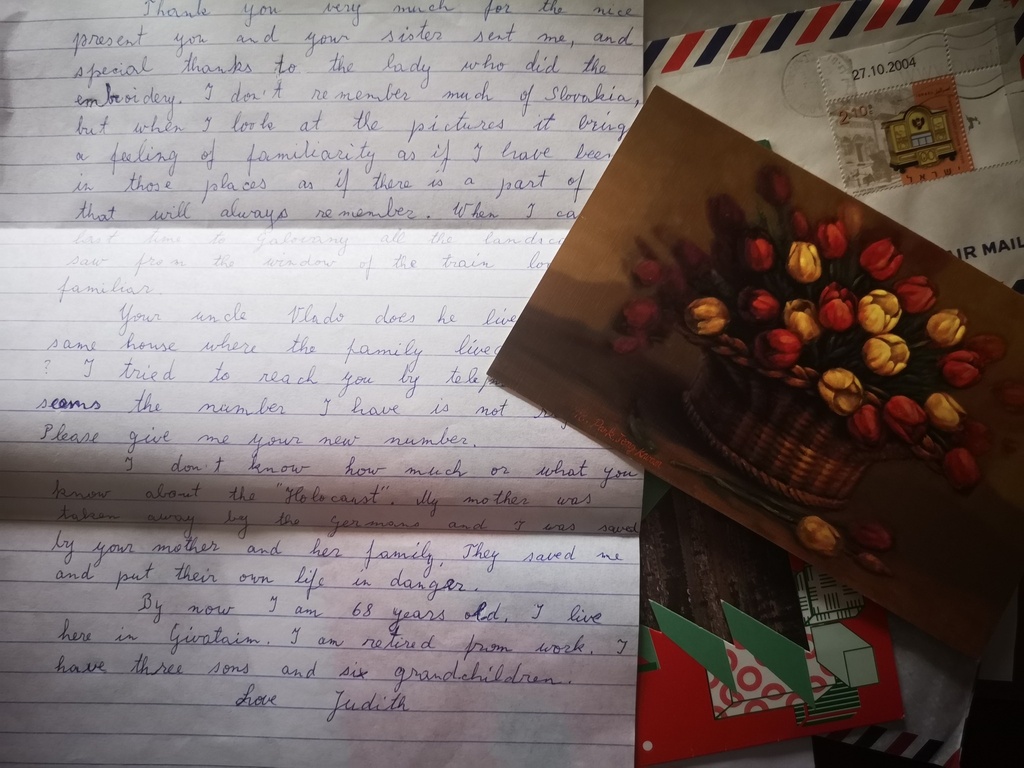 Thank you very much for the nice
present you and your sister sent me, and
special thanks to the lady who did the
embroidery. I don't remember much of Slovakia,
but when I look at the pictures it bring
a feeling of familiarity as if I have been
in those places as if there is a part of
that will always remember. When I ca
last time to Galovany all the landsc
saw from the window of the train
familiar.
Your uncle Vlado does he live
same house where the family lived
? I tried to reach you by telep
seams the number I have is not
Please give me your new number.
I don't know how much or what you
know about the "Holocaust". My mother was
taken away by the germans and I was saved
by your mother and her family. They saved me
and put their own life in danger.
By now I am 68 years old. I live
here in Givataim. I am retired from work. I
have three sons and six grandchildren.
Love Judith
27.10.2004
2.10
ישראל
AIR MAIL